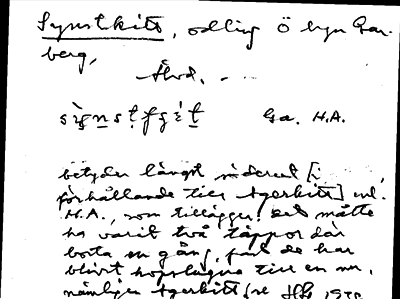 Synstkitt, odling Ö byn Gar-
berg,
Älvd.
Ga. H.A.
betyder längst söderut [i
förhållande till Agerkitt] enl.
H.A., som tillägger: det måtte
ha varit två täppor där
borta en gång, fast de har
blivit hopslagna till en nu,
nämligen Agerkitt (se